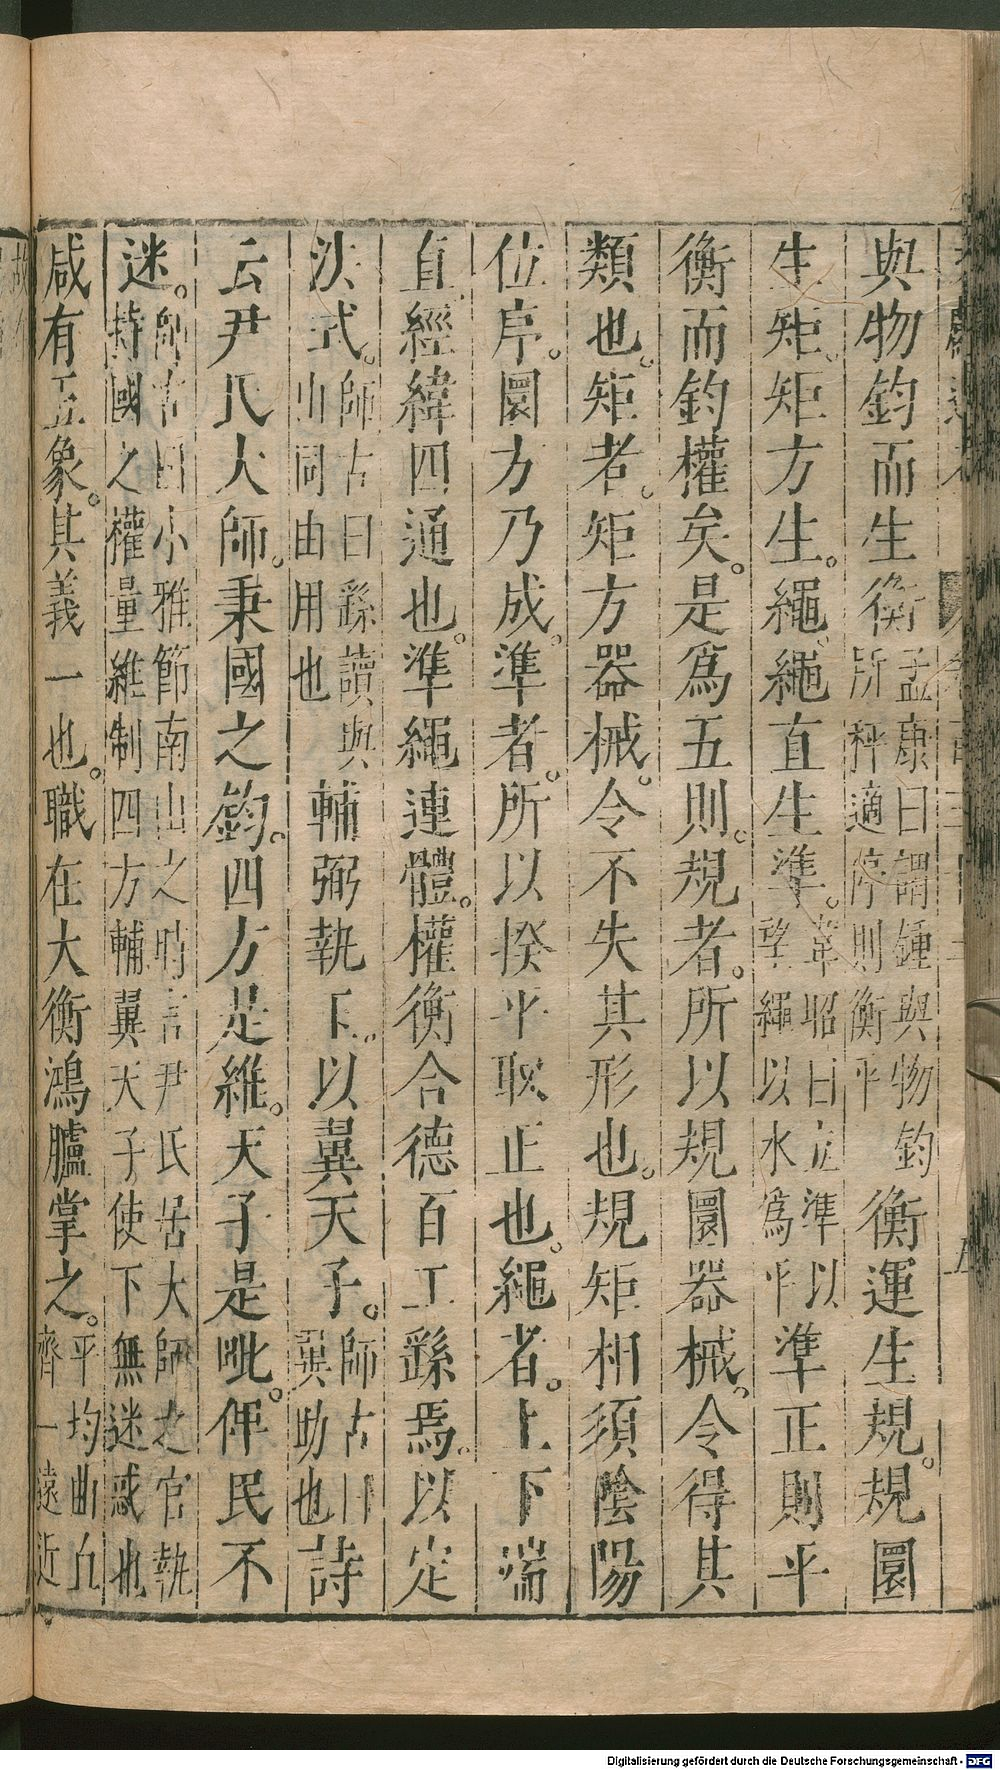 與物鈞而生衡孟康曰謂錘與物鈞所稱適停則衡平衡運生規。規圜
生矩。矩方生。繩。繩直生準。韋昭曰立準以望繩以水爲平準正則平
衡而鈞權矣。是爲五則。規者。所以規圜器械。令得其
類也。矩者。矩方器械。令不失其形也。規矩相須陰陽
位序。圜方乃成。準者。所以揆平取正也。繩者。上下端
直經緯四通也。準繩連體。權衡合德百工繇焉。以定
法式。師古曰繇讀與由同由用也輔弼執下。以翼天子。師古曰翼助也詩
云尹氏大師。秉國之鈞。四方是維。天子是毗。俾民不
迷。師古曰小雅節南山之詩言尹氏居大師之官執持國之權量維制四方輔翼天子使下無迷惑也
咸有五象。其義一也。職在大衡鴻臚掌之。平均曲直齊一遠近
Digitalisierung gefördert durch die Deutsche Forschungsgemeinschaft - DFG